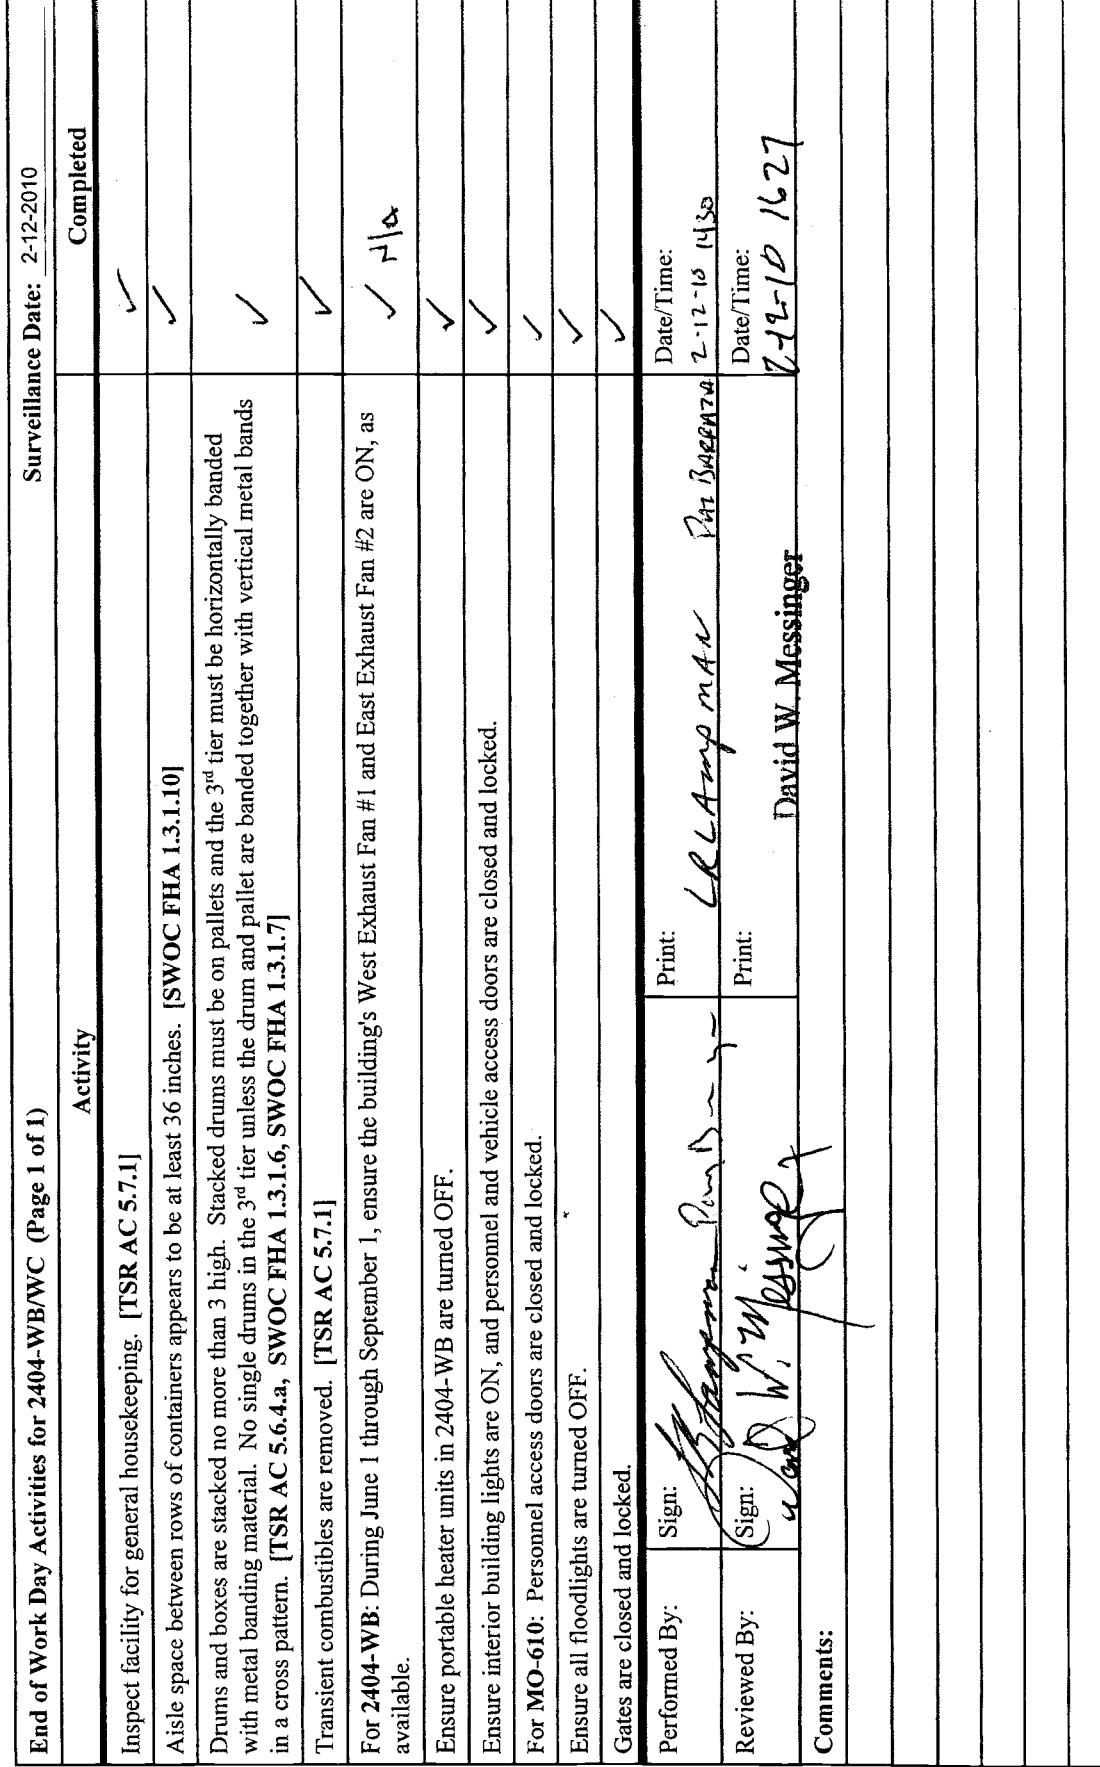 End of Work Day Activities for 2404-WB/WC (Page 1 of 1) Surveillance Date: 2-12-2010
Activity Completed
Inspect facility for general housekeeping. [TSR AC 5.7.1] ✓
Aisle space between rows of containers appears to be at least 36 inches. [SWOC FHA 1.3.1.10] ✓
Drums and boxes are stacked no more than 3 high. Stacked drums must be on pallets and the 3rd tier must be horizontally banded
with metal banding material. No single drums in the 3rd tier unless the drum and pallet are banded together with vertical metal bands ✓
in a cross pattern. [TSR AC 5.6.4.a, SWOC FHA 1.3.1.6, SWOC FHA 1.3.1.7]
Transient combustibles are removed. [TSR AC 5.7.1] ✓
For 2404-WB: During June 1 through September 1, ensure the building's West Exhaust Fan #1 and East Exhaust Fan #2 are ON, as ✓ N/a
available.
Ensure portable heater units in 2404-WB are turned OFF. ✓
Ensure interior building lights are ON, and personnel and vehicle access doors are closed and locked. ✓
For MO-610: Personnel access doors are closed and locked. ✓
Ensure all floodlights are turned OFF. ✓
Gates are closed and locked. ✓
Performed By: Sign: Print: LR LAmpmAN BARRATA Date/Time: 2-12-10 1430
Reviewed By: Sign: David W. Messinger Print: David W. Messinger Date/Time: 2-12-10 1627
Comments: